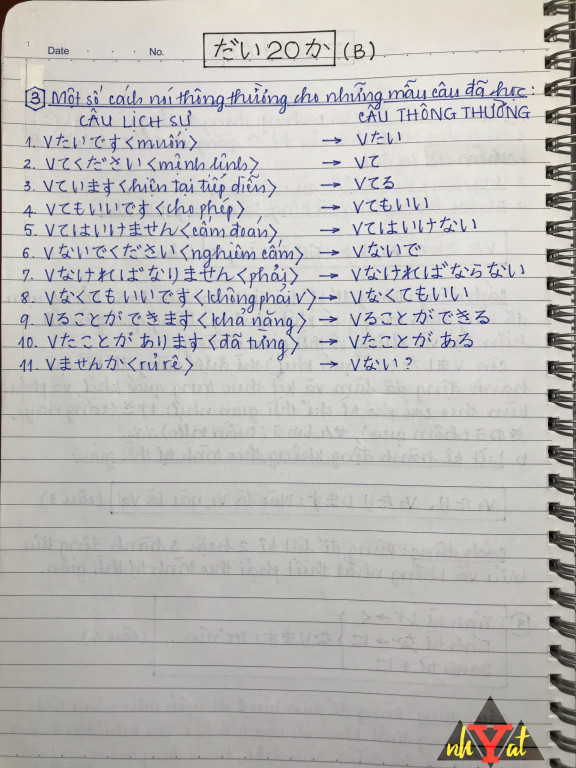 Date . . . No.
だい20か (B)
3 Một số cách nói thông thường cho những mẫu câu đã học:
CÂU LỊCH SỰ CÂU THÔNG THƯỜNG
1. Vたいです〈muốn〉 → Vたい
2. Vてください〈mệnh lệnh〉 → Vて
3. Vています〈hiện tại tiếp diễn〉 → Vてる
4. Vてもいいです〈cho phép〉 → Vてもいい
5. Vてはいけません〈cấm đoán〉 → Vてはいけない
6. Vないでください〈nghiêm cấm〉 → Vないで
7. Vなければなりません〈phải〉 → Vなければならない
8. Vなくてもいいです〈không phải V〉 → Vなくてもいい
9. Vることができます〈khả năng〉 → Vることができる
10. Vたことがあります〈đã từng〉 → Vたことがある
11. Vませんか〈rủ rê〉 → Vない?
nhYat